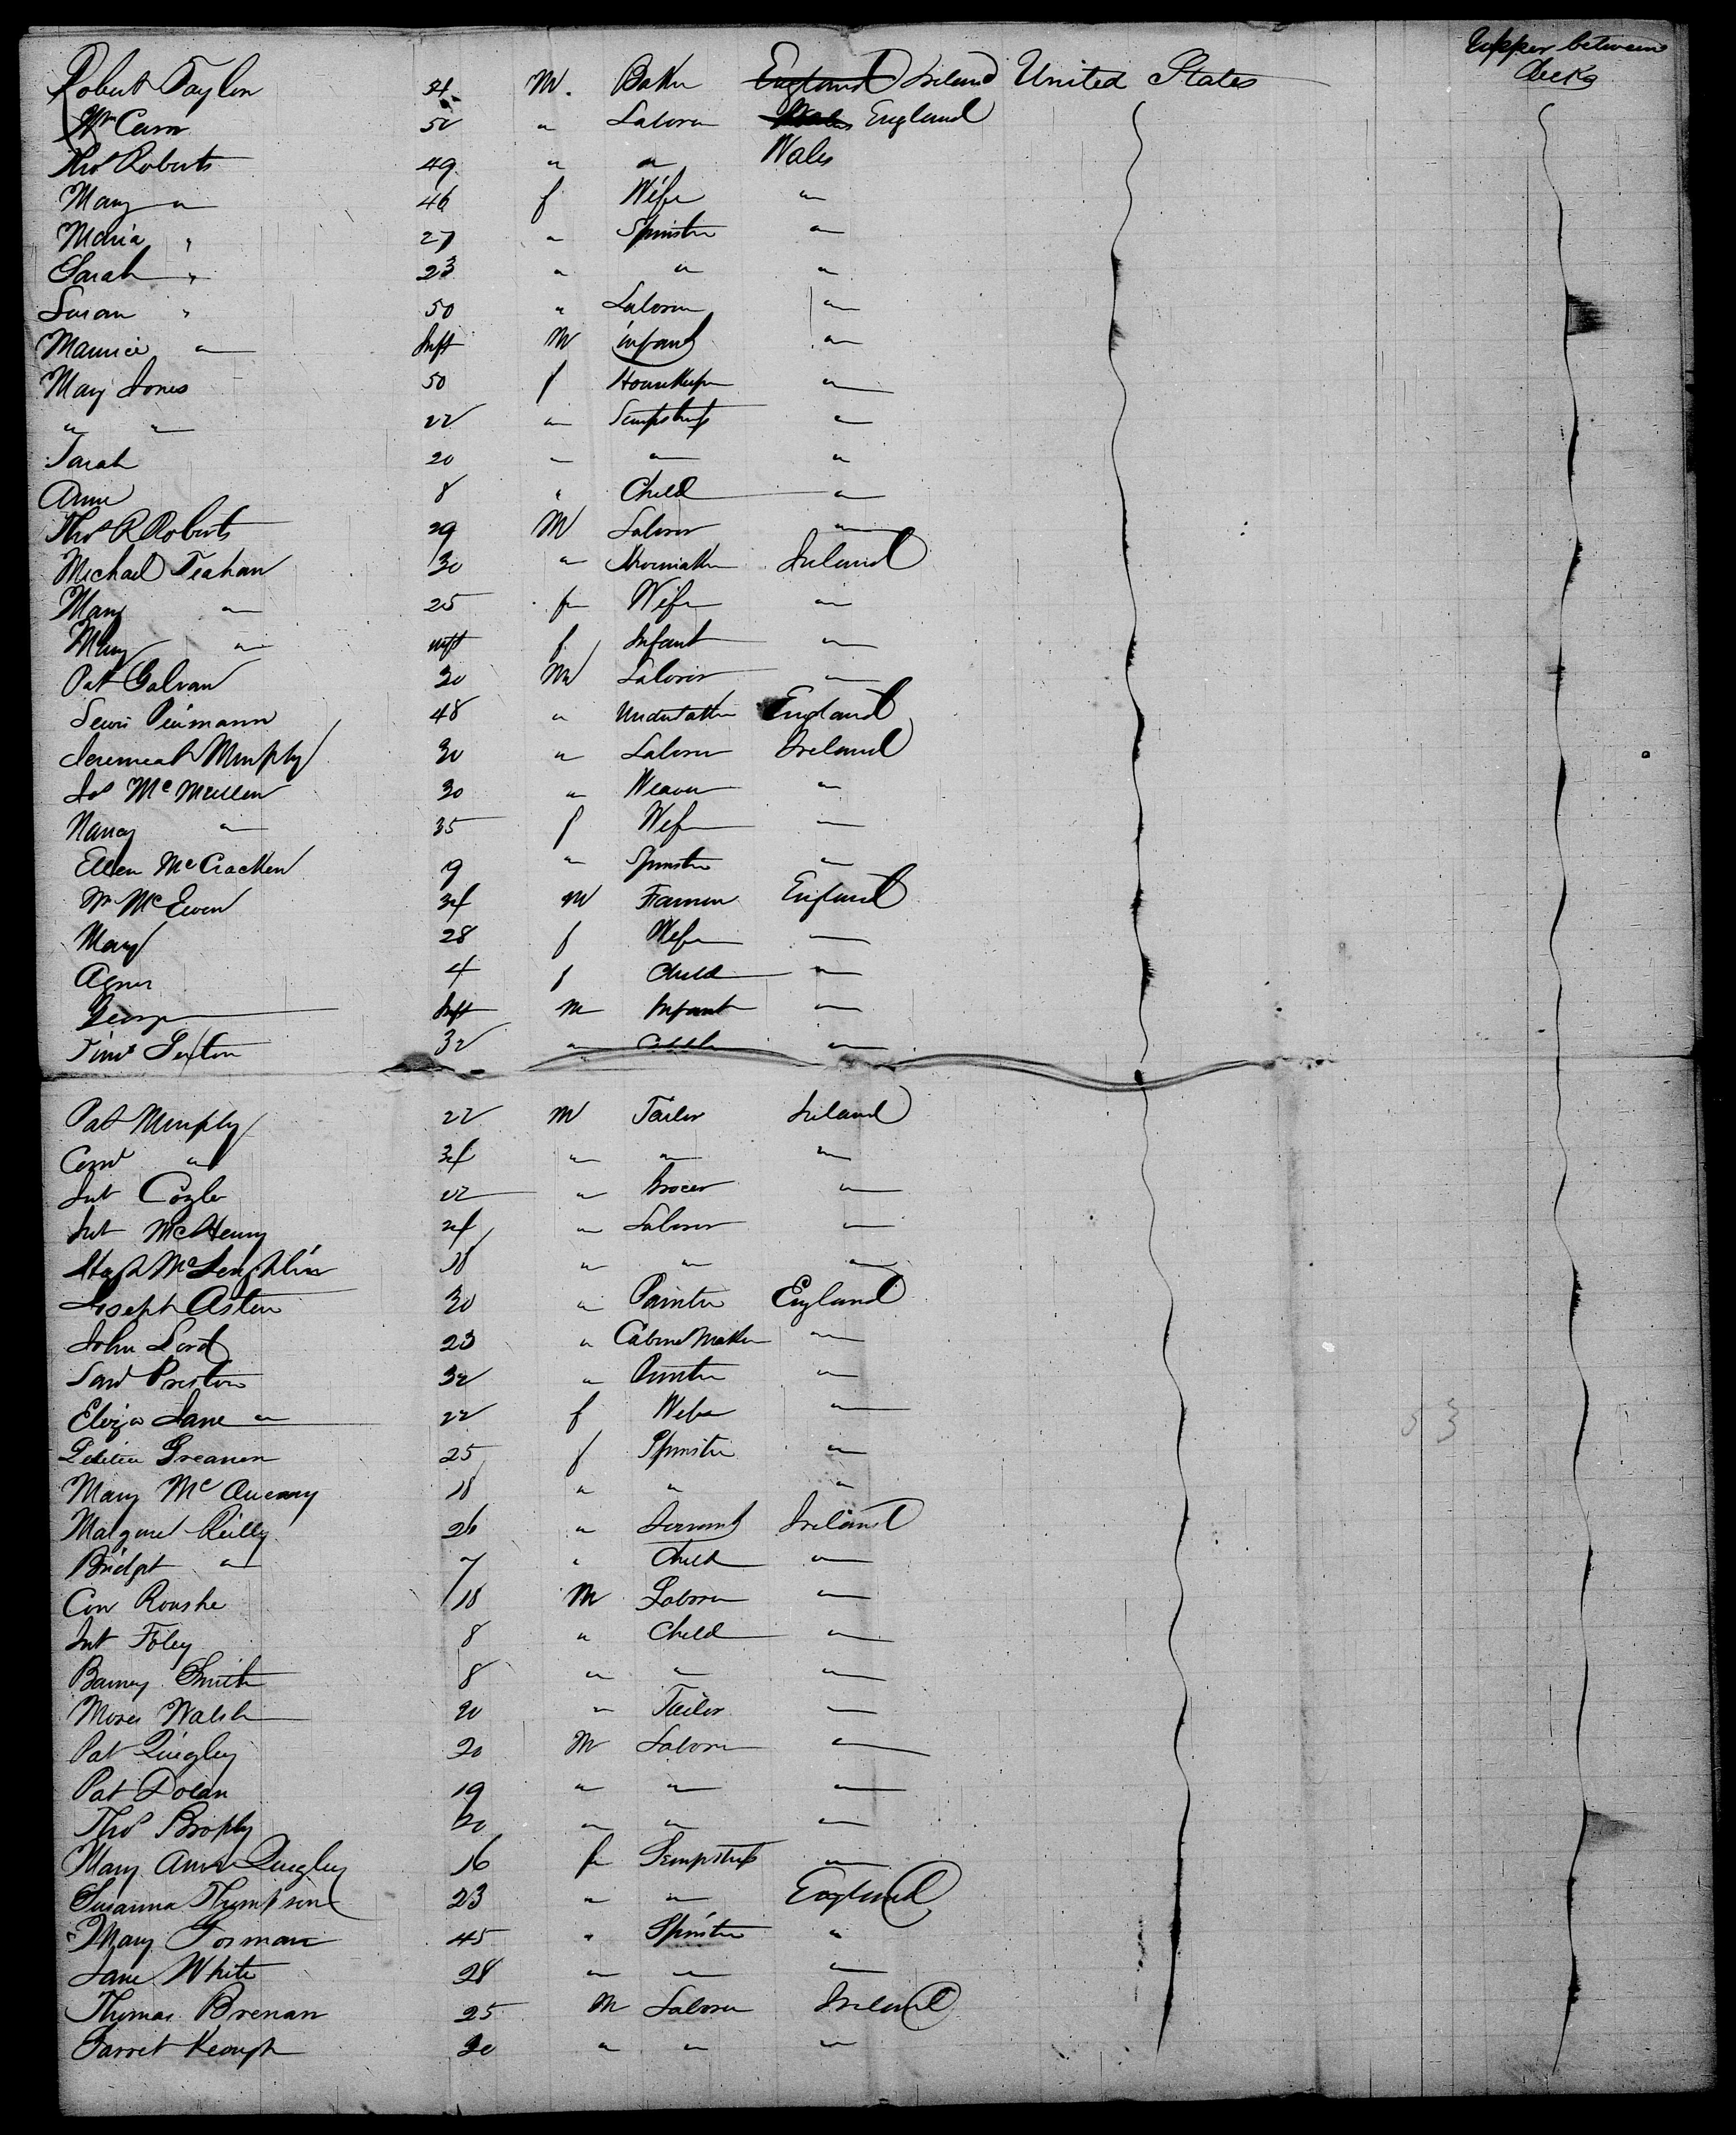 Upper between
decks
Robert Taylor 21 M. Baker England Ireland United States
Wm Carr 50 " Laborer Wales England
Thos Roberts 49 " " Wales
Mary " 46 f Wife "
Maria " 27 " Spinster "
Sarah " 23 " " "
Susan " 50 " Laborer "
Maurice " Inft M infant "
Mary Jones 50 f Housekeeper "
" " 22 " Sempstress "
Sarah 20 " " "
Anne 8 " Child "
Thos R Roberts 29 M Laborer "
Michael Teahan 30 " Shoemaker Ireland
Mary " 25 f Wife "
Mary " inft f Infant "
Pat Galvan 20 M Laborer "
Lewis 48 " Undertaker England
Jeremeah Murphy 30 " Laborer Ireland
Jas McMullen 30 " Weaver "
Nancy " 35 f Wife "
Ellen McCracken 19 " Spinster "
Wm McEwen 34 M Farmer England
Mary 28 f Wife "
Agnes 4 f Child "
George Inft M Infant "
Timt Sexton 32 " "
Pat Murphy 22 M Tailor Ireland
Corns " 34 " " "
Jnt 22 " Grocer "
Jnt McHenry 24 " Laborer "
Hugh McLeughlin 18 " " "
Joseph Aston 30 " Painter England
John Lord 23 " Cabinet Maker "
Edwd Preston 32 " Printer "
Eliza Jane " 22 f Wife "
Letitia Greanen 25 f Spinster "
Mary 18 " " "
Margaret Reilly 26 " Servant Ireland
Bridget " 7 " Child "
Con Roushe 18 M Laborer "
Jnt Foley 8 " Child "
Barney Smith 8 " " "
Moses Walsh 20 " Tailor "
Pat Quigley 20 M Laborer "
Pat Dolan 19 " " "
Thos Brophy 20 " " "
Mary Ann Quigley 16 f Sempstress "
Susanna Thompson 23 " " England
Mary Gorman 45 " Spinster "
Jane White 28 " " "
Thomas Brenan 25 M Laborer Ireland
Garret Keough 20 " " "